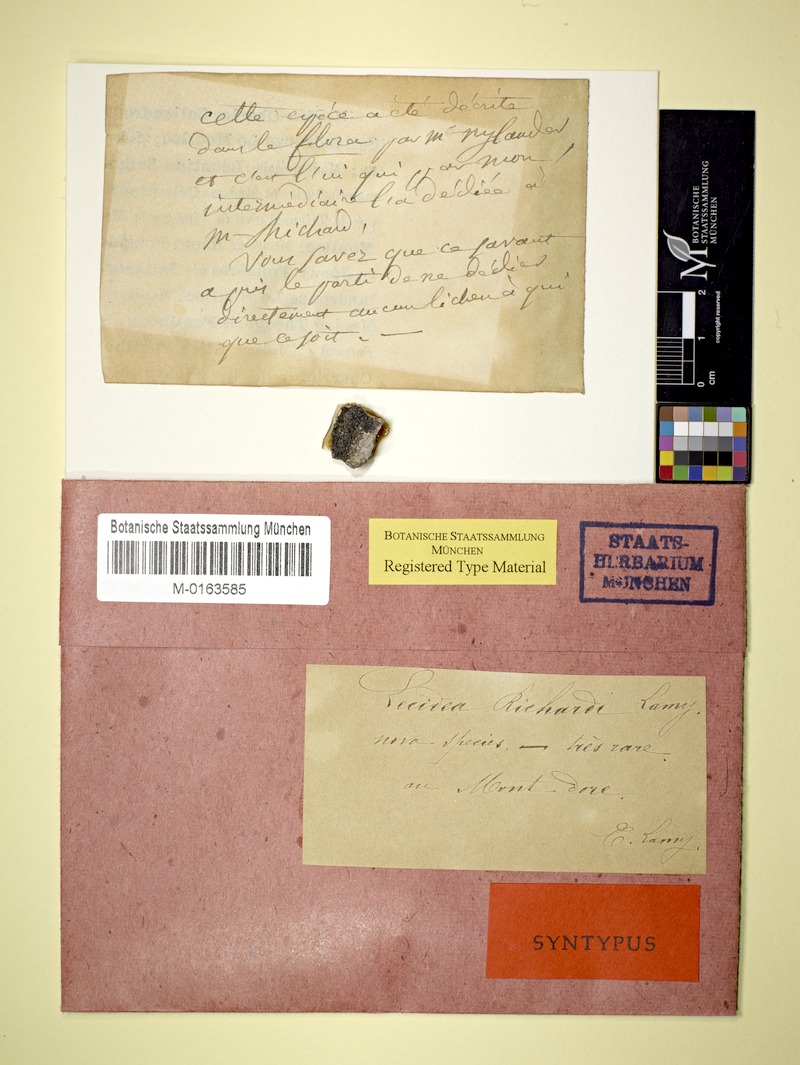 cette espéce a été décrite
dans le flora par mr nylander
et c'est lui qui par mon
intermédiaire l'a dédiée à
mr Richard,
Vous savez que ce savant
a pris le parti de ne dédier
directement aucun lichen à qui
que ce soit. —
BOTANISCHE
STAATSSAMMLUNG
MÜNCHEN
copyright reserved
0 1 2
cm
Botanische Staatssammlung München
M-0163585
BOTANISCHE STAATSSAMMLUNG
MÜNCHEN
Registered Type Material
STAATS-
HERBARIUM
MÜNCHEN
Lecidea Richardi Lamy.
nova species. — très rare
au Mont-dore.
E. Lamy.
SYNTYPUS